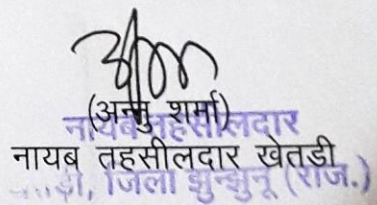 (अन्नु शर्मा)
नायब तहसीलदार
नायब तहसीलदार खेतडी
जिला झुन्झुनू (राज.)